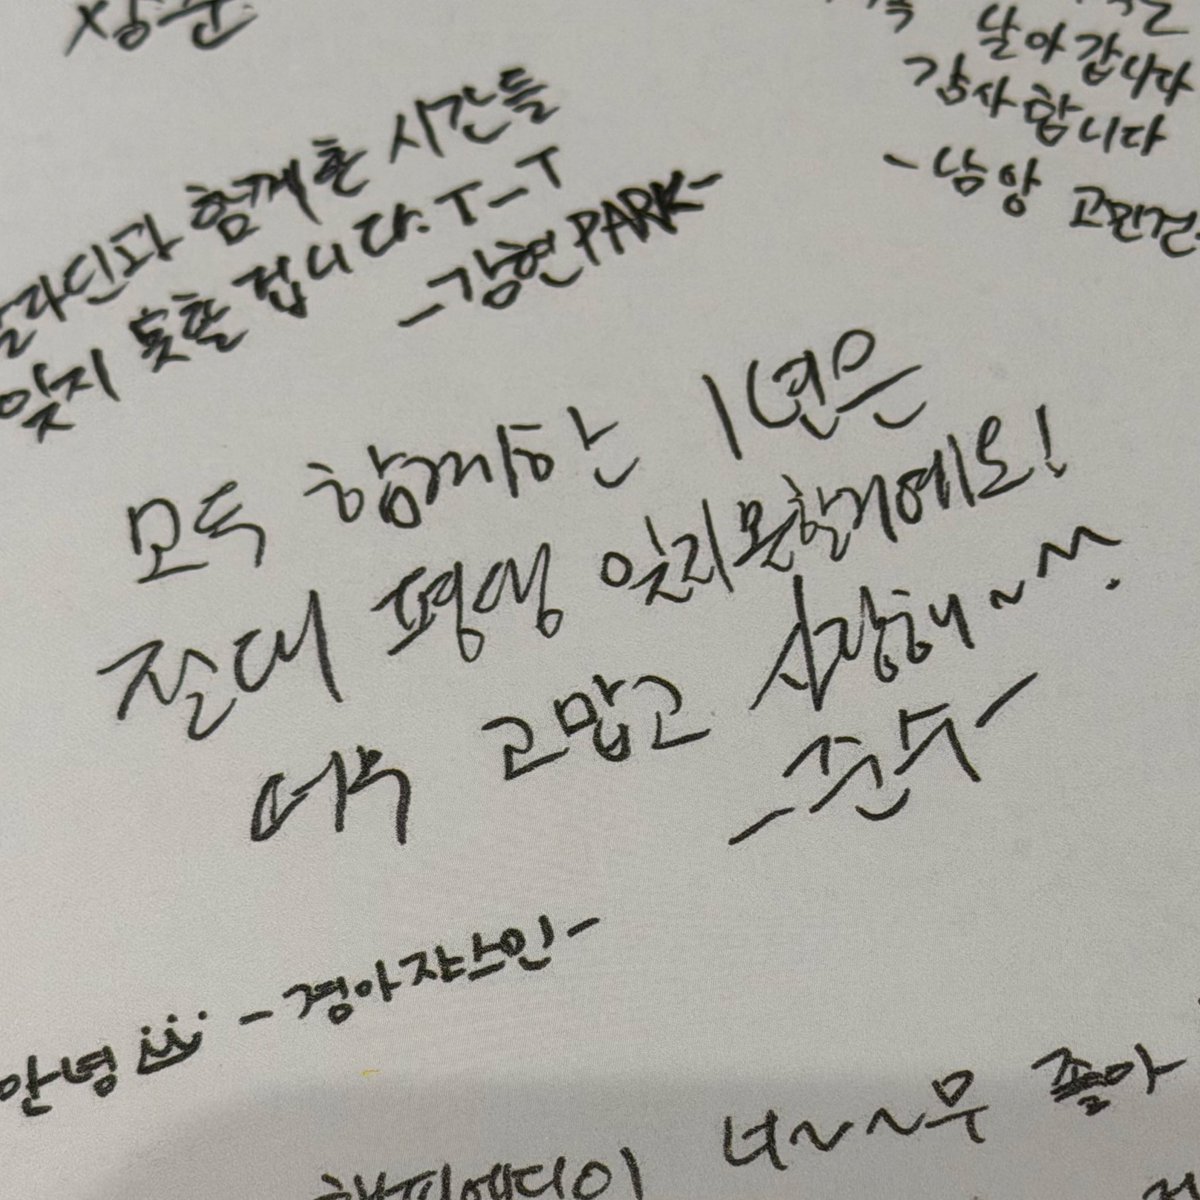 날아갑니다
감사합니다
-남양 고민건-
알라딘과 함께한 시간들
잊지 못할 겁니다. T-T
-강현PARK-
모두 함께한 1년은
절대 평생 잊지못할거예요!
너무 고맙고 사랑해~
-준수-
안녕 -경아쟈스민-
너~~무 좋아